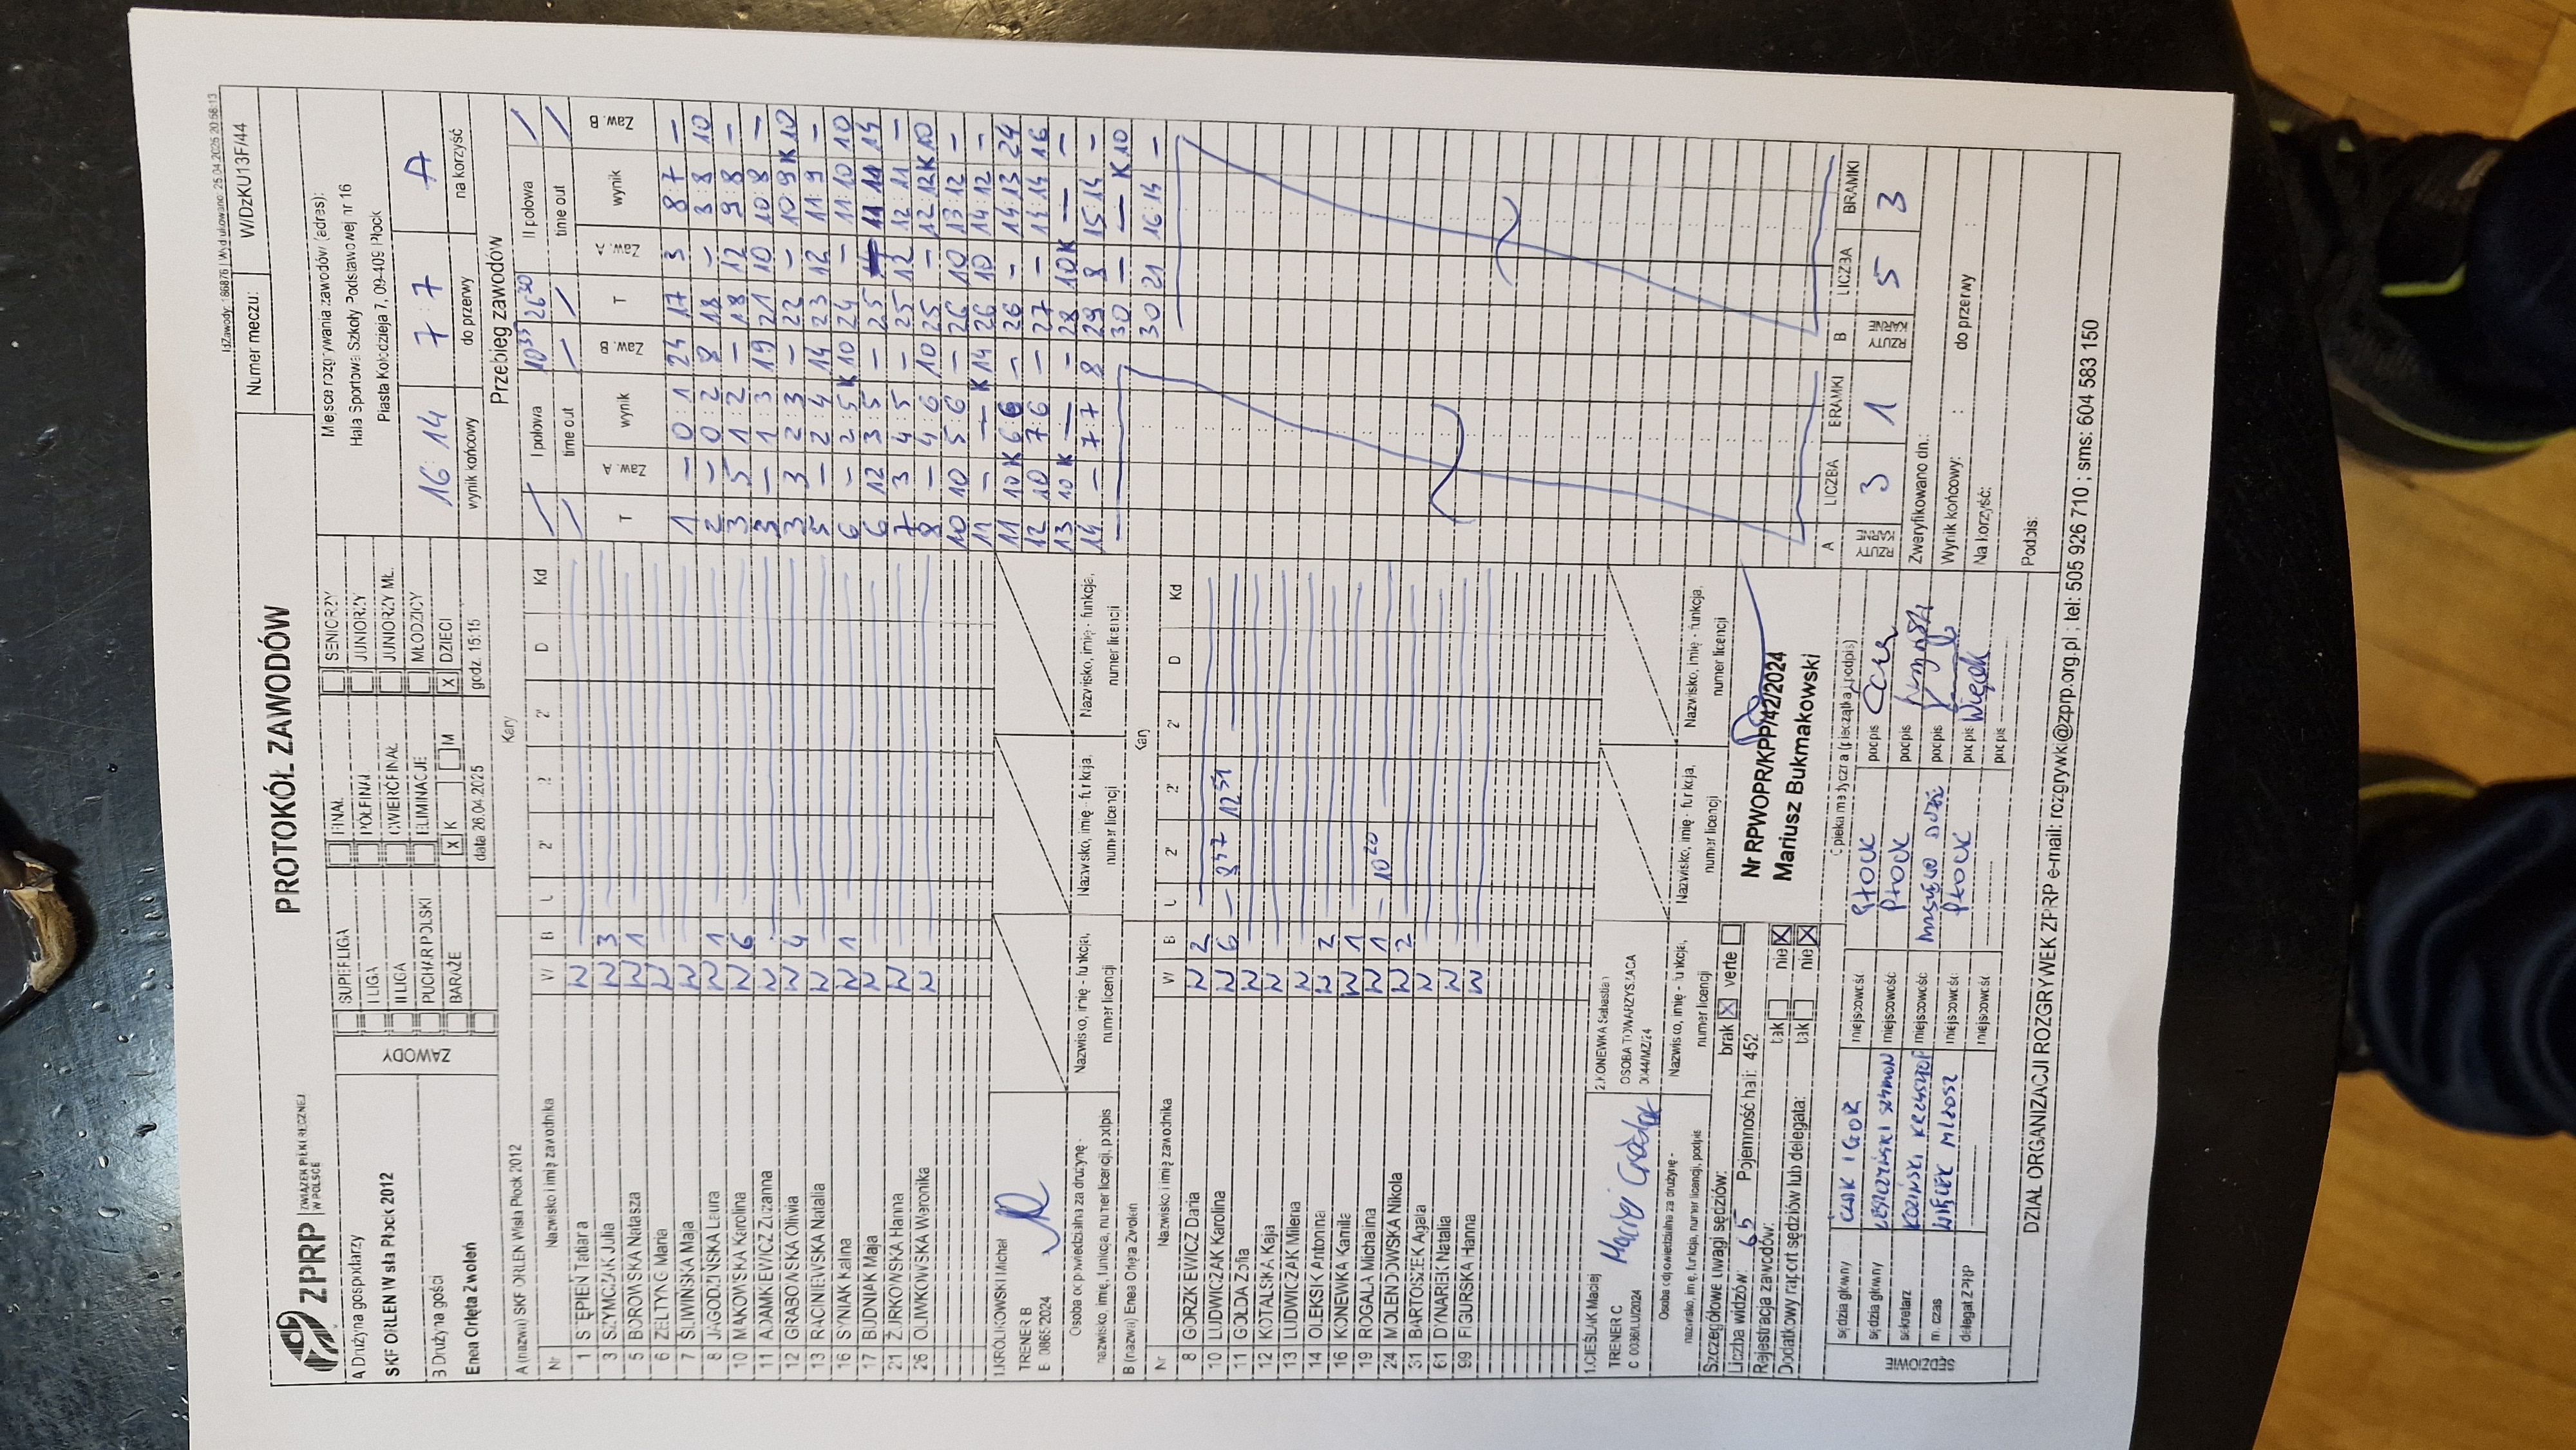 IdZawody: 186876 | Wydrukowano: 25.04.2025 20:58:13
ZPRP ZWIĄZEK PIŁKI RĘCZNEJ W POLSCE
PROTOKÓŁ ZAWODÓW
Numer meczu: W/DzKU13F/44
A Drużyna gospodarzy
SKF ORLEN Wisła Płock 2012
B Drużyna gości
Enea Orlęta Zwoleń
ZAWODY
SUPERLIGA
I LIGA
II LIGA
PUCHAR POLSKI
BARAŻE
FINAŁ
PÓŁFINAŁ
ĆWIERĆFINAŁ
ELIMINACJE
X K M
data 26.04.2025
SENIORZY
JUNIORZY
JUNIORZY MŁ.
MŁODZICY
X DZIECI
godz. 15:15
Miejsce rozgrywania zawodów (adres):
Hala Sportowa Szkoły Podstawowej nr 16
Piasta Kołodzieja 7, 09-409 Płock
16 : 14 7 : 7 A
wynik końcowy do przerwy na korzyść
Przebieg zawodów
I połowa 10 35 26 30 II połowa
time out time out
T Zaw. A wynik Zaw. B T Zaw. A wynik Zaw. B
1 – 0:1 24 17 3 8:7 –
2 – 0:2 8 18 – 8:8 10
3 5 1:2 – 18 12 9:8 –
3 – 1:3 19 21 10 10:8 –
3 3 2:3 – 22 – 10:9 K10
5 – 2:4 14 23 12 11:9 –
6 – 2:5 K10 24 – 11:10 10
6 12 3:5 – 25 11:11 14
7 3 4:5 – 25 12 12:11 –
8 – 4:6 10 25 – 12:12 K10
10 10 5:6 – 26 10 13:12 –
11 – — K14 26 10 14:12 –
11 10K 6:6 – 26 – 14:13 24
12 10 7:6 – 27 – 14:14 16
13 10K — – 28 10K — –
14 – 7:7 8 29 8 15:14 –
30 – — K10
30 21 16:14 –
A (nazwa) SKF ORLEN Wisła Płock 2012 Kary
Nr Nazwisko i imię zawodnika W B U 2' 2' 2' D Kd
1 STĘPIEŃ Tatiana W
3 SZYMCZAK Julia W 3
5 BOROWSKA Natasza W 1
6 ZELTYNG Maria W
7 ŚLIWIŃSKA Maja W
8 JAGODZIŃSKA Laura W 1
10 MĄKOWSKA Karolina W 6
11 ADAMKIEWICZ Zuzanna W
12 GRABOWSKA Oliwia W 4
13 RACINIEWSKA Natalia W
16 SYNIAK Kalina W 1
17 BUDNIAK Maja W
21 ŻURKOWSKA Hanna W
26 OLIWKOWSKA Weronika W
1.KRÓLIKOWSKI Michał
TRENER B
Osoba odpowiedzialna za drużynę -
nazwisko, imię, funkcja, numer licencji, podpis
Nazwisko, imię - funkcja,
numer licencji
Nazwisko, imię - funkcja,
numer licencji
Nazwisko, imię - funkcja,
numer licencji
B (nazwa) Enea Orlęta Zwoleń Kary
Nr Nazwisko i imię zawodnika W B U 2' 2' 2' D Kd
8 GORZKIEWICZ Daria W 2
10 LUDWICZAK Karolina W 6 – 8 47 12 51
11 GOŁDA Zofia W
12 KOTALSKA Kaja W
13 LUDWICZAK Milena W
14 OLEKSIK Antonina W 2
16 KONEWKA Kamila W 1
19 ROGALA Michalina W 1 – 10 20
24 MOLENDOWSKA Nikola W 2
31 BARTOSZEK Agata W
61 DYNAREK Natalia W
99 FIGURSKA Hanna W
1.CIEŚLAK Maciej
TRENER C
Maciej Cieślak
2.KONEWKA Sebastian
OSOBA TOWARZYSZĄCA
Osoba odpowiedzialna za drużynę -
nazwisko, imię, funkcja, numer licencji, podpis
Nazwisko, imię - funkcja,
numer licencji
Nazwisko, imię - funkcja,
numer licencji
Nazwisko, imię - funkcja,
numer licencji
Szczegółowe uwagi sędziów: brak X verte
Liczba widzów: 65 Pojemność hali: 452
Rejestracja zawodów: tak nie X
Dodatkowy raport sędziów lub delegata: tak nie X
Nr RPWOPR/KPP/42/2024
Mariusz Bukmakowski
Opieka medyczna (pieczątka, podpis)
SĘDZIOWIE
sędzia główny CŁAK IGOR miejscowość PŁOCK podpis
sędzia główny LESZCZYŃSKI SZYMON miejscowość PŁOCK podpis
sekretarz KOZIŃSKI KRZYSZTOF miejscowość MASZEWO DUŻE podpis
m. czas WIĘCEK MIŁOSZ miejscowość PŁOCK podpis Więcek
delegat ZPRP miejscowość podpis
A RZUTY KARNE LICZBA 3 BRAMKI 1
B RZUTY KARNE LICZBA 5 BRAMKI 3
Zweryfikowano dn.:
Wynik końcowy: : do przerwy :
Na korzyść:
Podpis:
DZIAŁ ORGANIZACJI ROZGRYWEK ZPRP e-mail: rozgrywki@zprp.org.pl ; tel: 505 926 710 ; sms: 604 583 150